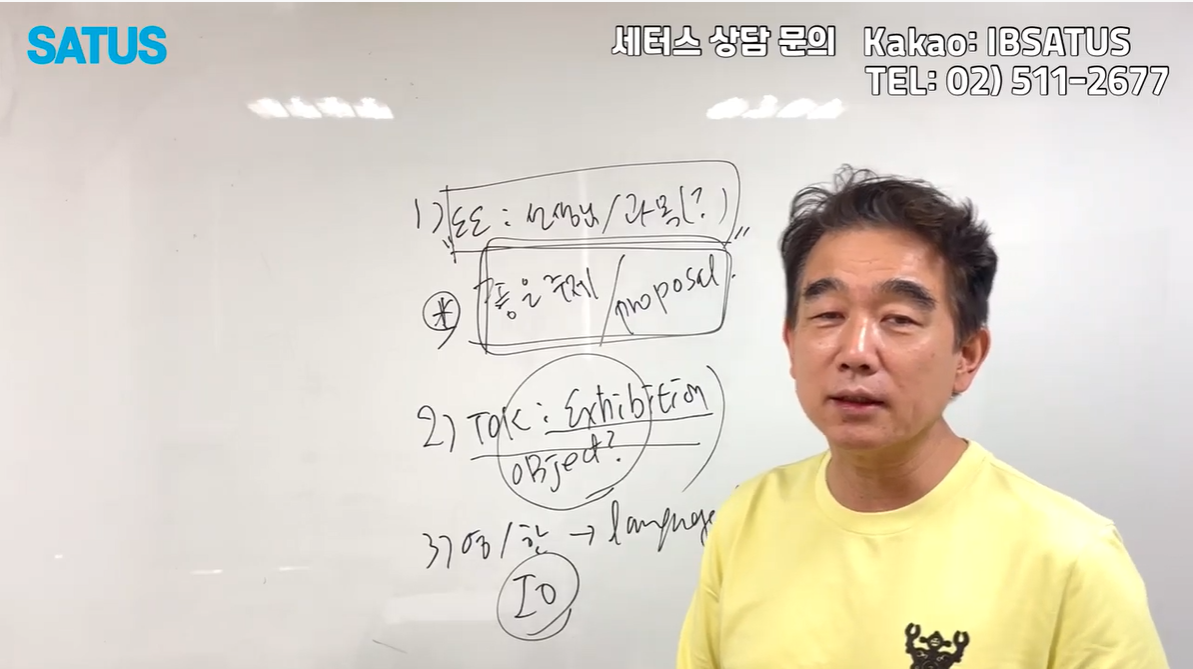 SATUS
세터스 상담 문의 Kakao: IBSATUS
TEL: 02) 511-2677
1) EE : 선생님/과목(?)
좋은 주제/proposal
2) TOK : Exhibition
object?
3) 영/한 → language
IO